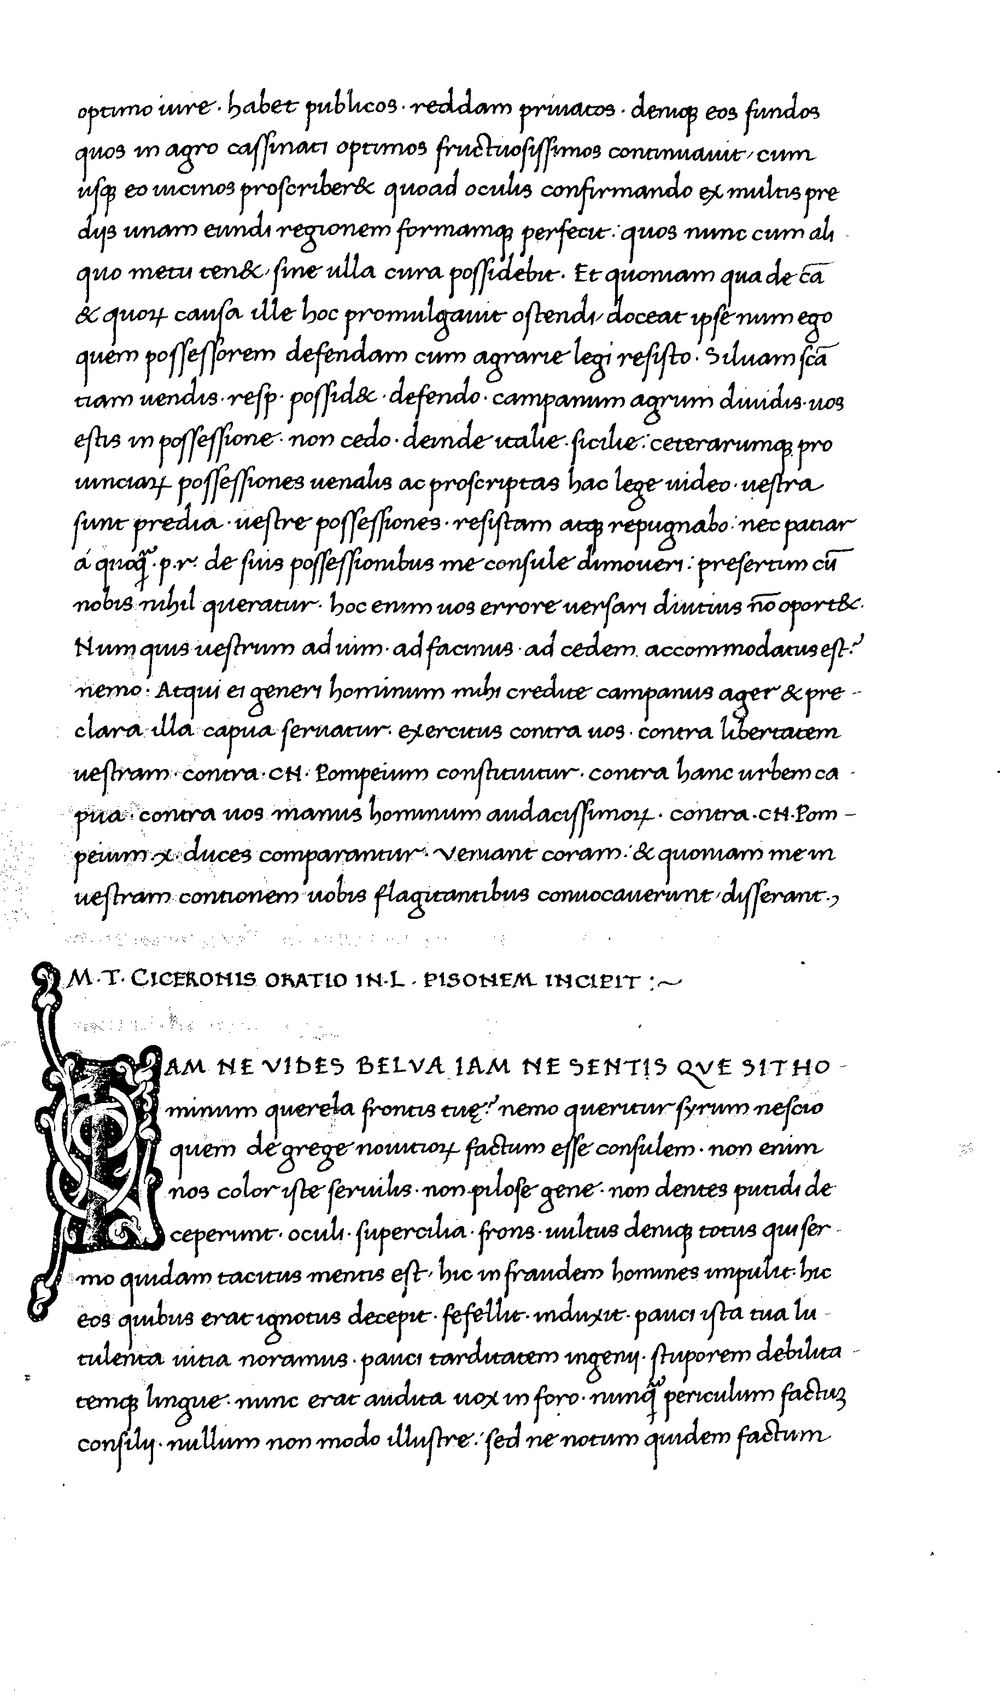 optimo iure · habet publicos · reddam priuatos · deniqꝫ eos fundos
quos in agro cassinati optimos fructuosissimos continuauit / cum
usqꝫ eo uicinos proscriber& quoad oculis confirmando ex multis pre
diis unam eundi regionem formamqꝫ perfecit : quos nunc cum ali
quo metu ten& / sine ulla cura possidebit · Et quoniam qua de cā
& quoꝝ causa ille hoc promulgauit ostendi / doceat ipse num ego
quem possessorem defendam cum agrarie legi resisto · Siluam scā
tiam uendis · resp · possid& · defendo · campanum agrum diuidis · uos
estis in possessione · non cedo · deinde italie · sicilie : ceterarumqꝫ pro
uinciaꝝ possessiones uenalis ac proscriptas hac lege uideo · uestra
sunt predia · uestre possessiones · resistam atqꝫ repugnabo : nec patiar
á quoqᷓ · p.r. de suis possessionibus me consule dimoueri : presertim cū
nobis nihil queratur · hoc enim uos errore uersari diutius nō oport& ·
Num quis uestrum ad uim · ad facinus · ad cedem accommodatus est ?
nemo : Atqui ei generi hominum mihi credite campanus ager & pre -
clara illa capua seruatur · exercitus contra uos · contra libertatem
uestram · contra · CN · Pompeium constituitur · contra hanc urbem ca -
pua · contra uos manus hominum audacissimoꝝ · contra · CN · Pom -
peium · x · duces comparantur · Veniant coram : & quoniam me in
uestram contionem uobis flagitantibus conuocauerunt / disserant ·,
M · T · CICERONIS ORATIO IN · L · PISONEM INCIPIT :~
IAM NE VIDES BELVA IAM NE SENTIS QVE SIT HO -
minum querela frontis tuę ? nemo queritur syrum nescio
quem de grege nouitioꝝ factum esse consulem · non enim
nos color iste seruilis · non pilose gene · non dentes putidi de
ceperunt · oculi · supercilia · frons · uultus deniqꝫ totus qui ser -
mo quidam tacitus mentis est / hic in fraudem homines impulit · hic
eos quibus erat ignotus decepit · fefellit · induxit · pauci ista tua lu -
tulenta uitia noramus · pauci tarditatem ingenii · stuporem debilita -
temqꝫ lingue · nunc erat audita uox in foro · nunqᷓ periculum factuꝫ
consilii · nullum non modo illustre : sed ne notum quidem factum